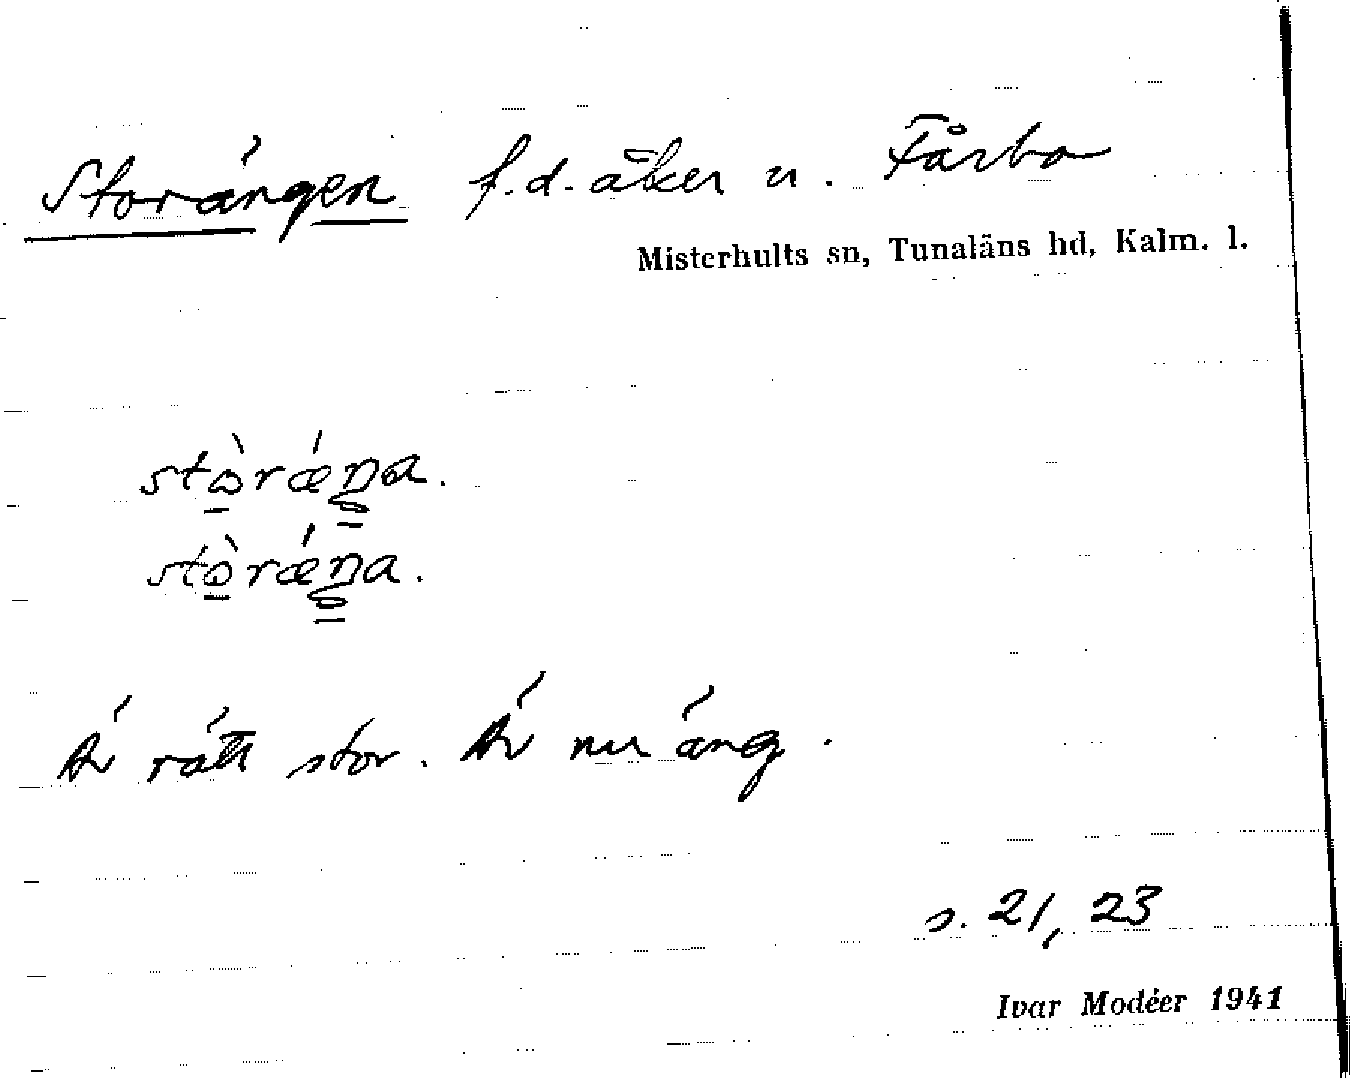 Storängen f.d. åker u. Fårbo
Misterhults sn, Tunaläns hd, Kalm. l.
stὼrǽŋa.
stὼrǽŋa.
Är rätt stor. Är nu äng.
s. 21, 23
Ivar Modéer 1941